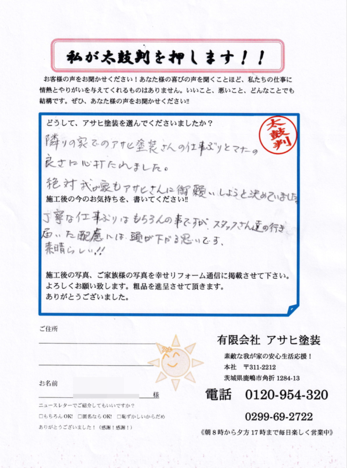 私が太鼓判を押します!!
お客様の声をお聞かせください!あなたの喜びの声を聞くことほど、私たちの仕事に
情熱とやりがいを与えてくれるものはありません。いいこと、悪いこと、どんなことでも
結構です。ぜひ、あなたの声をお聞かせください!!
どうして、アサヒ塗装を選んでくださいましたか?
太鼓判
隣りの家でのアサヒ塗装さんの仕事ぶりとマナーの
良さに心打たれました。
絶対我が家もアサヒさんに御願いしようと決めていました
施工後の今のお気持ちを、書いてください!!
丁寧な仕事ぶりはもちろんの事ですが、スタッフさん達の行き
届いた配慮には頭が下がる思いです。
素晴らしい!!
施工後の写真、ご家族様の写真を幸せリフォーム通信に掲載させて下さい。
よろしくお願い致します。粗品を進呈させて頂きます。
ありがとうございました。
ご住所
お名前
様
ニュースレターでご紹介してもいいですか?
□もちろんOK! □匿名ならOK! □恥ずかしいからだめ
ありがとうございました!(感謝!感謝!)
有限会社 アサヒ塗装
素敵な我が家の安心生活応援!
本社 〒311-2212
茨城県鹿嶋市角折 1284-13
電話 0120-954-320
0299-69-2722
《朝8時から夕方17時まで毎日楽しく営業中》